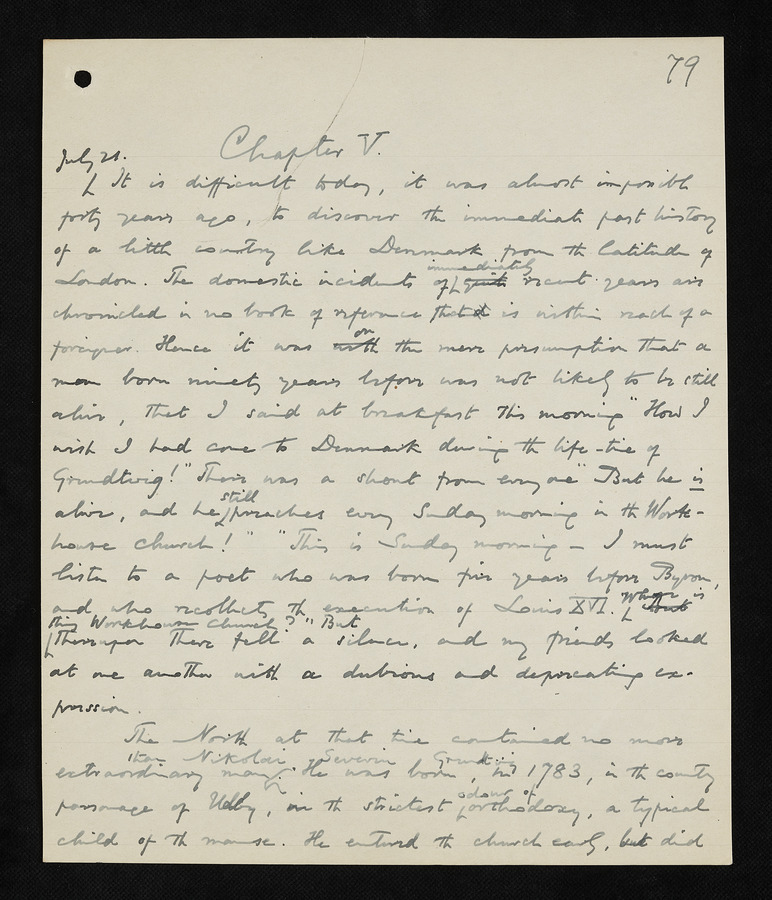 79
Chapter V.
July 21.
It is difficult today, it was almost impossible
forty years ago, to discover the immediate past history
of a little country like Denmark from the latitude of
London. The domestic incidents of immediately quite recent years are
chronicled in no book of reference that is within reach of a
foreigner. Hence it was with on the mere presumption that a
man born ninety years before was not likely to be still
alive, that I said at breakfast this morning "How I
wish I had come to Denmark during the life-time of
Grundtvig!" There was a shout from everyone "But he is
alive, and he still preaches every Sunday morning in the Work-
house church!" "This is Sunday morning – I must
listen to a poet who was born five years before Byron,
and who recollects the execution of Louis XVI. Where is
this Workhouse Church?" But
Thereupon There fell a silence, and my friends looked
at one another with a dubious and deprecating ex-
pression.
The North at that time contained no more
extraordinary man than Nikolai Severin Grundt... He was born, in 1783, in the country
parsonage of Udby, in the strictest odour of orthodoxy, a typical
child of the manse. He entered the church early, but did